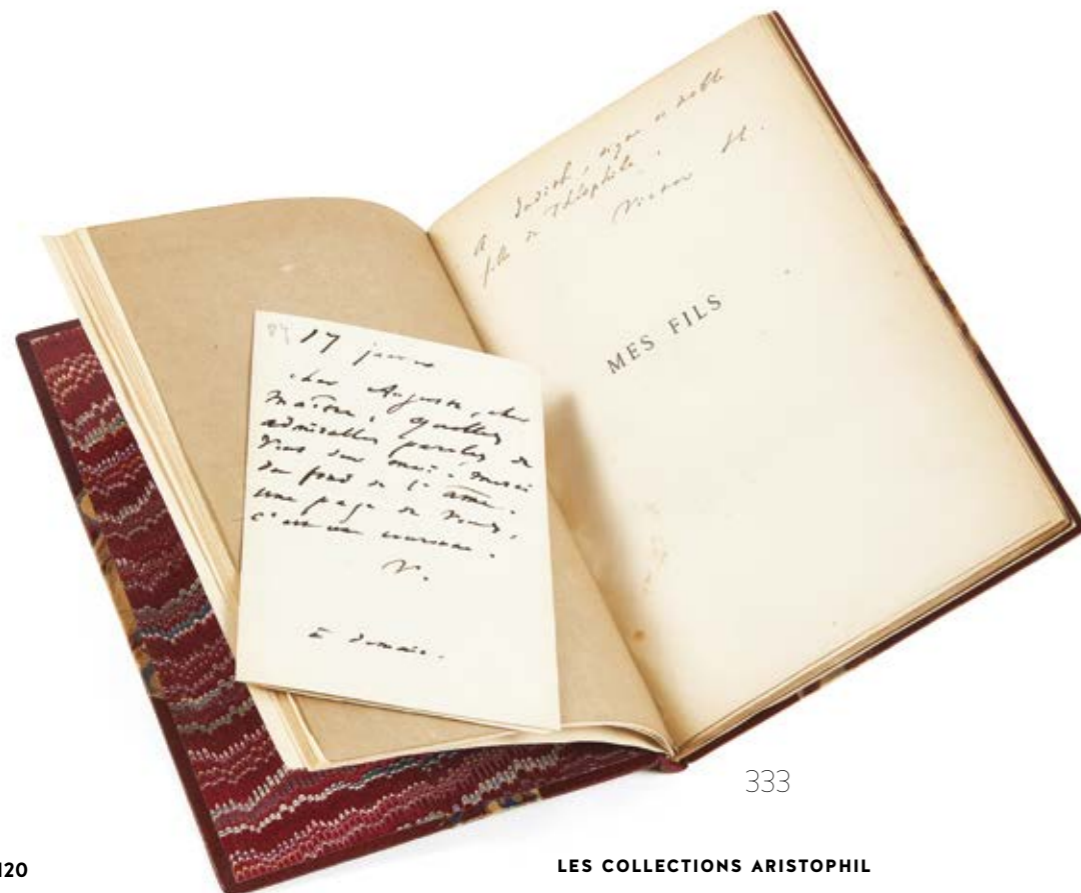 A Judith, digne et noble
fille de Théophile.
Victor H.
MES FILS
17 janvier
cher Auguste, cher
maître, quelles
admirables paroles de
vous sur moi ! merci
du fond de l'âme.
une page de vous,
c'est une couronne.
V.
à demain.
333
120
LES COLLECTIONS ARISTOPHIL